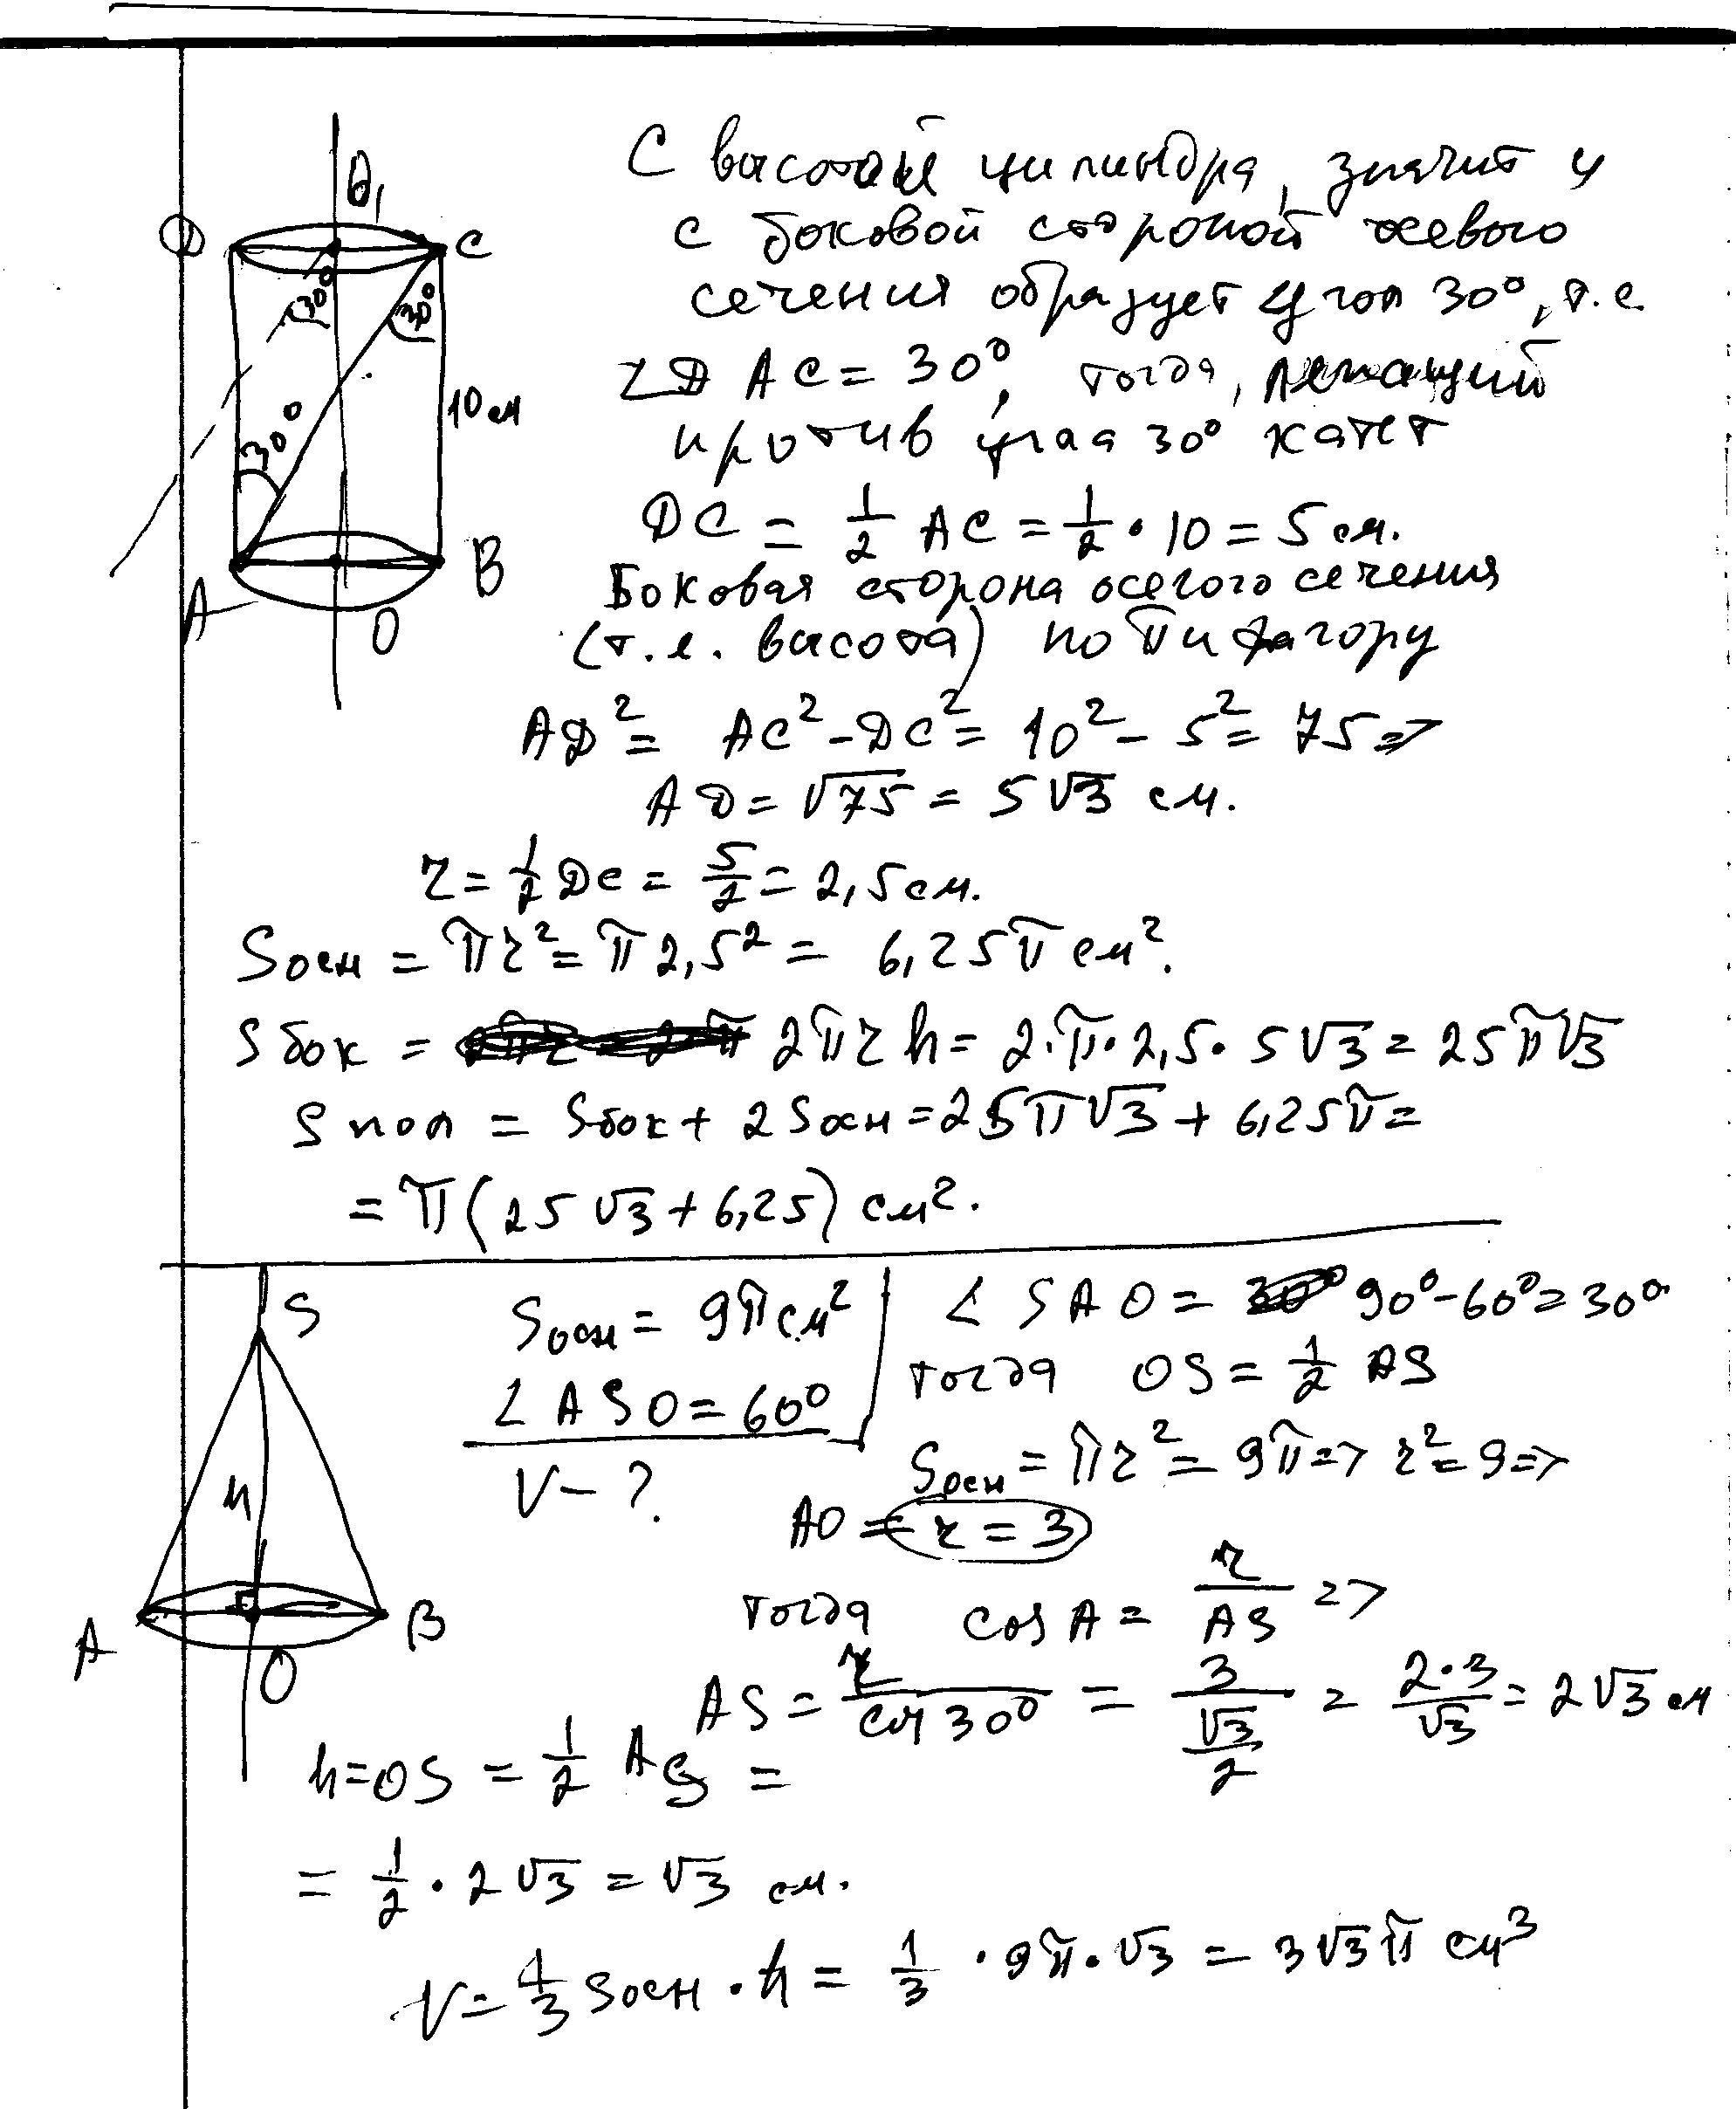 O₁
D
C
30°
30°
10 см
30°
A
B
O
С высотой цилиндра, значит и
с боковой стороной осевого
сечения образует угол 30°, т.е.
∠DAC = 30°, тогда, лежащий
против угла 30° катет
DC = 1/2 AC = 1/2 · 10 = 5 см.
Боковая сторона осегого сечения
(т.е. высота) по Пифагору
AD² = AC² - DC² = 10² - 5² = 75 =>
AD = √75 = 5√3 см.
r = 1/2 DC = 5/2 = 2,5 см.
Sосн = πr² = π 2,5² = 6,25π см².
Sбок = 2πrh = 2·π·2,5·5√3 = 25π√3
Sпол = Sбок + 2Sосн = 25π√3 + 6,25π =
= π(25√3 + 6,25) см².
S
h
A
B
O
Sосн = 9π см²
∠ASO = 60°
V - ?
∠SAO = 90° - 60° = 30°
тогда OS = 1/2 AS
Sосн = πr² = 9π => r² = 9 =>
AO = r = 3
тогда cos A = r/AS =>
AS = r/cos 30° = 3/(√3/2) = 2·3/√3 = 2√3 см
h = OS = 1/2 AS =
= 1/2 · 2√3 = √3 см.
V = 1/3 Sосн · h = 1/3 · 9π · √3 = 3√3π см³